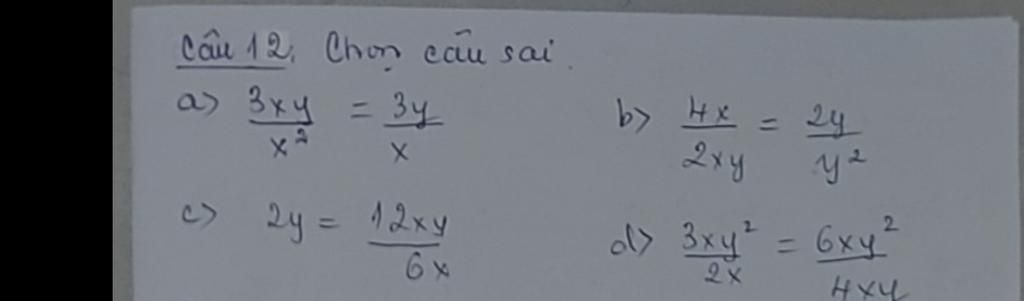 Câu 12. Chọn câu sai.
a) 3xy/x² = 3y/x b) 4x/2xy = 2y/y²
c) 2y = 12xy/6x d) 3xy²/2x = 6xy²/4xy